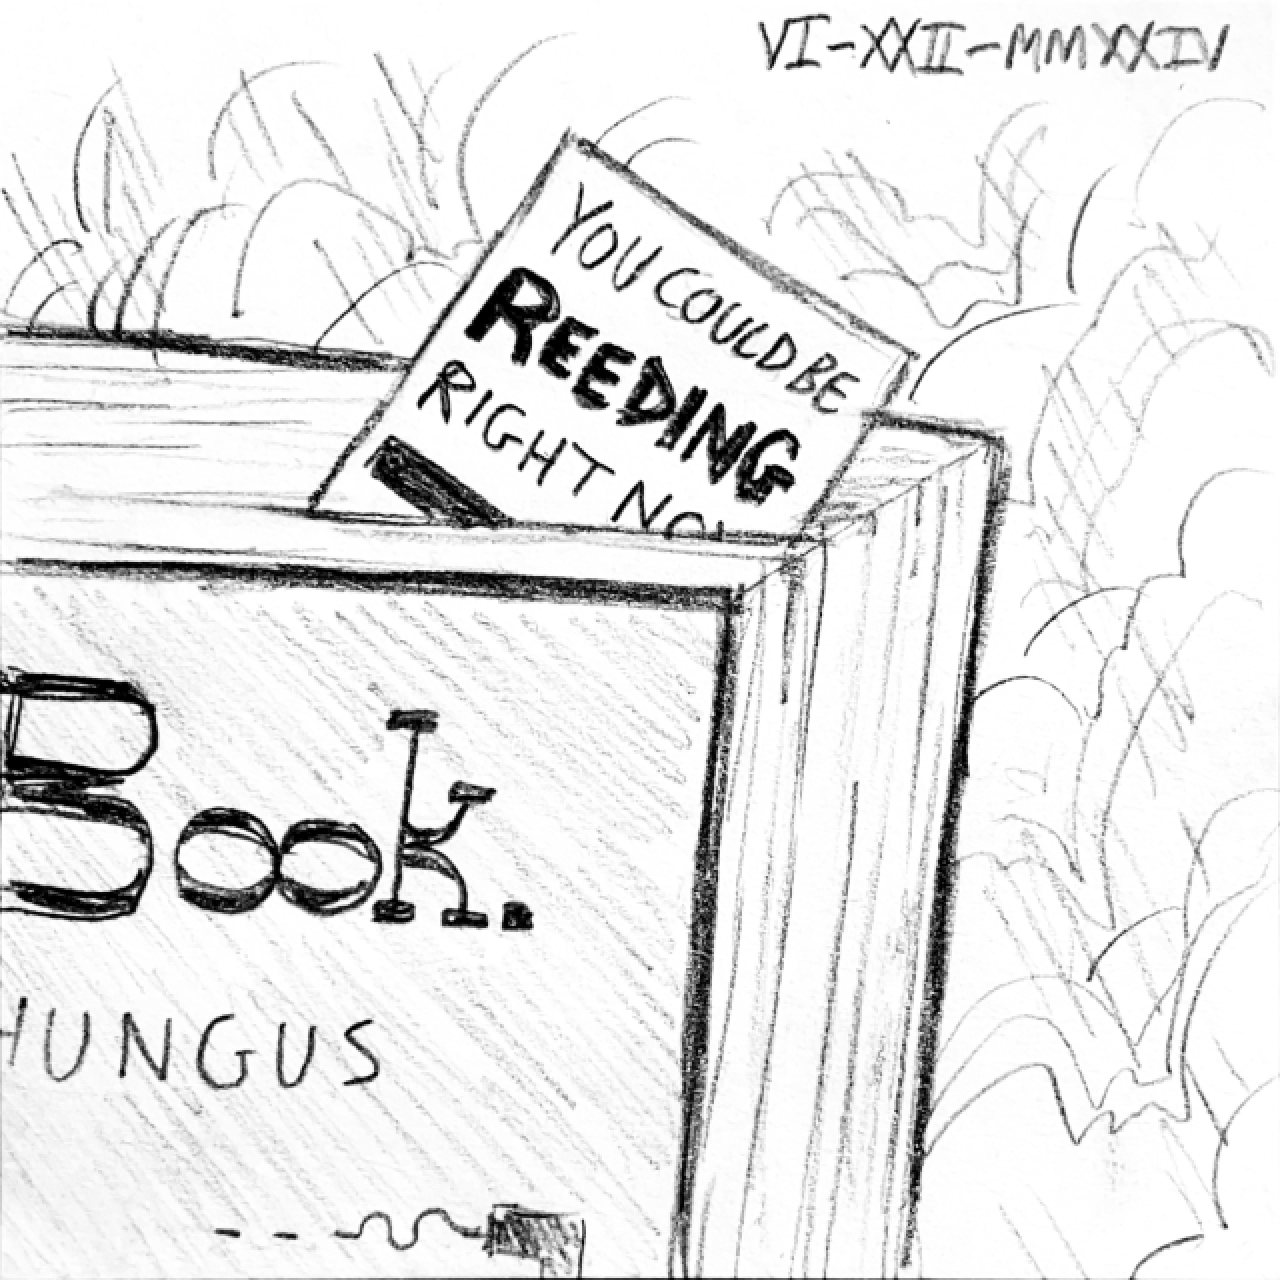 VI-XXII-MMXXIV
YOU COULD BE
REEDING
RIGHT NO
Book.
HUNGUS